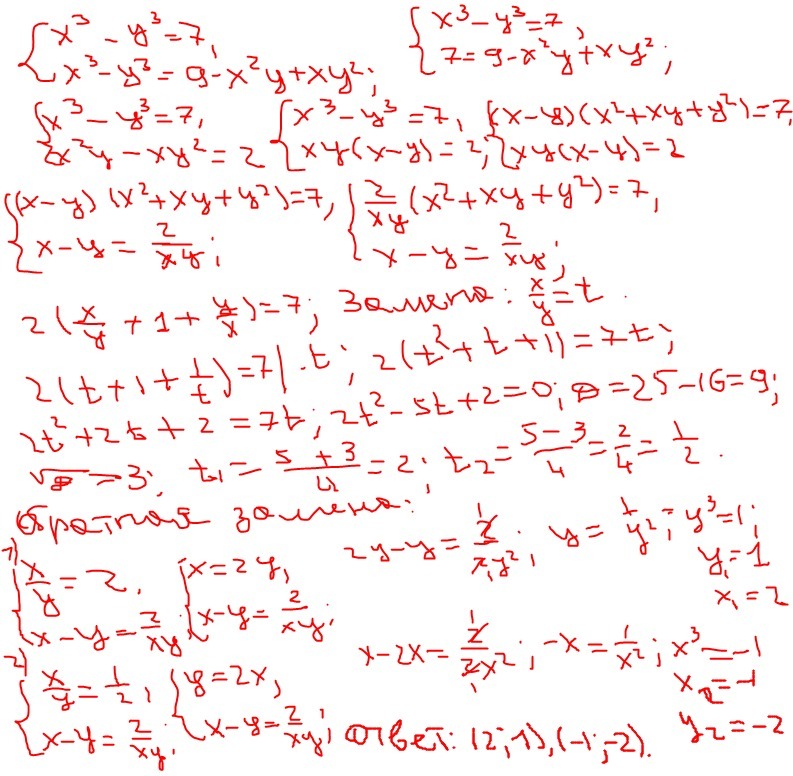 { x³ - y³ = 7, x³ - y³ = 9 - x²y + xy²; { x³ - y³ = 7, 7 = 9 - x²y + xy²;
{ x³ - y³ = 7, x²y - xy² = 2 { x³ - y³ = 7, xy(x-y) = 2; { (x-y)(x²+xy+y²) = 7, xy(x-y) = 2
{ (x-y)(x²+xy+y²) = 7, x-y = 2/xy; { 2/xy (x²+xy+y²) = 7, x-y = 2/xy;
2(x/y + 1 + y/x) = 7; Замена: x/y = t.
2(t+1+1/t) = 7 | ·t; 2(t²+t+1) = 7t;
2t²+2t+2 = 7t; 2t²-5t+2 = 0; D = 25-16 = 9;
√D = 3; t₁ = (5+3)/4 = 2; t₂ = (5-3)/4 = 2/4 = 1/2.
Обратная замена:
1) { x/y = 2, x-y = 2/xy; { x = 2y, x-y = 2/xy; 2y-y = 2/2y²; y = 1/y²; y³ = 1; y₁ = 1 x₁ = 2
2) { x/y = 1/2, x-y = 2/xy; { y = 2x, x-y = 2/xy; x-2x = 2/2x²; -x = 1/x²; x³ = -1 x₂ = -1 y₂ = -2
Ответ: (2;1), (-1;-2).